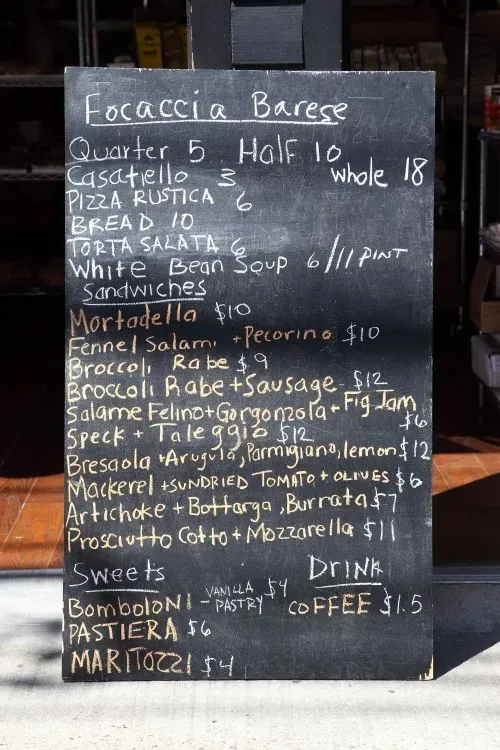 Focaccia Barese
Quarter 5 Half 10
Casatiello 3 whole 18
PIZZA RUSTICA 6
BREAD 10
TORTA SALATA 6
White Bean Soup 6/11 PINT
Sandwiches
Mortadella $10
Fennel Salami + Pecorino $10
Broccoli Rabe $9
Broccoli Rabe + Sausage $12
Salame Felino + Gorgonzola + Fig Jam
$6
Speck + Taleggio $12
Bresaola + Arugula, Parmigiano, lemon $12
Mackerel + SUNDRIED TOMATO + OLIVES $6
Artichoke + Bottarga, Burrata $7
Prosciutto Cotto + Mozzarella $11
Sweets
BomboloNI - VANILLA PASTRY $4
PASTIERA $6
MARITOZZI $4
DRINK
COFFEE $1.5